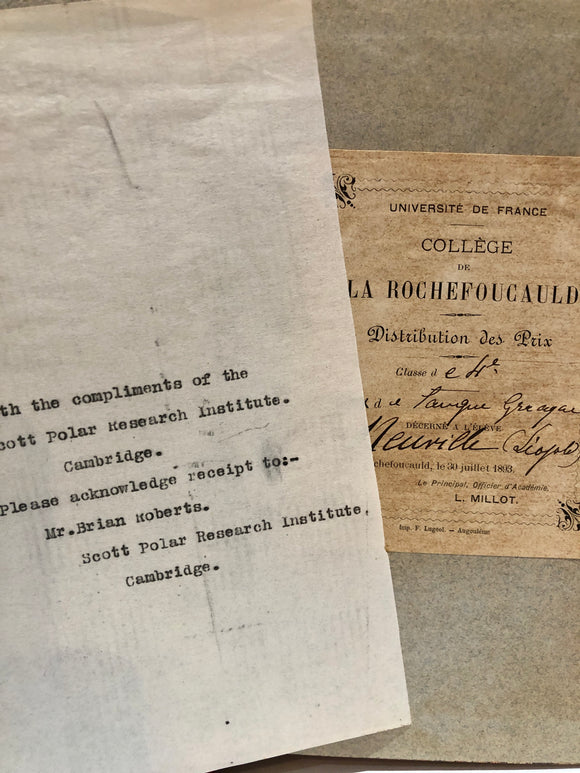 th the compliments of the
cott Polar Research Institute.
Cambridge.
Please acknowledge receipt to:-
Mr.Brian Roberts.
Scott Polar Research Institute,
Cambridge.
UNIVERSITÉ DE FRANCE
COLLÈGE
DE
LA ROCHEFOUCAULD
Distribution des Prix
Classe d e 4e.
d e Langue Grecque
DÉCERNÉ A L'ÉLÈVE
Neuville (Léopold)
chefoucauld, le 30 juillet 1893.
Le Principal, Officier d'Académie,
L. MILLOT.
Imp. F. Lugeol. — Angoulême